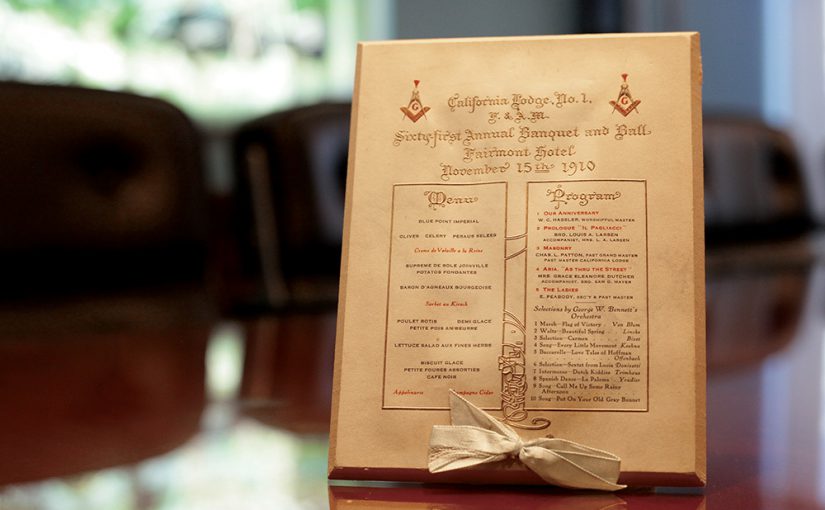 California Lodge, No. 1,
F. & A.M.
Sixty-first Annual Banquet and Ball
Fairmont Hotel
November 15th 1910
G
G
Menu
BLUE POINT IMPERIAL
OLIVES CELERY PERSUS SELEES
Creme de Volaille a la Reine
SUPREME DE SOLE JOINVILLE
POTATOS FONDANTES
BARON D'AGNEAUX BOURGEOISE
Sorbet au Kirsch
POULET ROTIS DEMI-GLACE
PETITE POIS AN/BEURRE
LETTUCE SALAD AUX FINES HERBS
BISCUIT GLACE
PETITE FOURES ASSORTIES
CAFE NOIR
Appolinaris Cider
Program
1 OUR ANNIVERSARY
W. C. HASSLER, WORSHIPFUL MASTER
2 PROLOGUE "IL PAGLIACCI"
BRO. LOUIS A. LARSEN
ACCOMPANIST, MRS. L. A. LARSEN
3 MASONRY
CHAS. L. PATTON, PAST GRAND MASTER
PAST MASTER CALIFORNIA LODGE
4 ARIA, "AS THRU THE STREET"
MRS. GRACE ELEANORE DUTCHER
ACCOMPANIST, BRO. SAM D. MAYER
5 THE LADIES
E. PEABODY, SEC'Y & PAST MASTER
Selections by George W. Bennett's
Orchestra
1 March—Flag of Victory Von Blum
2 Waltz—Beautiful Spring Lincke
3 Selection—Carmen Bizet
4 Song—Every Little Movement
5 Baccarelle—Love Tales of Hoffman
Offenbach
6 Selection—Sextet from Lucia Donizetti
7 Intermezzo—Dutch Kiddies Trinkaus
8 Spanish Dance—La Paloma Yradier
9 Song—Call Me Up Some Rainy
Afternoon
10 Song—Put On Your Old Gray Bonnet